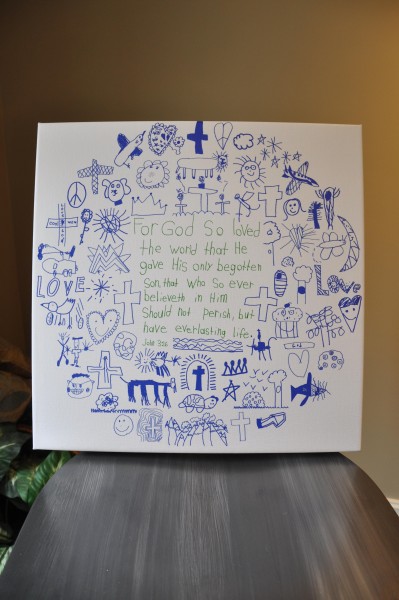 For God So loved
the word that He
gave His only begotten
Son, that Who So ever
believeth in Him
Should not perish, but
have everlasting life.
John 3:16
LOVE
Love